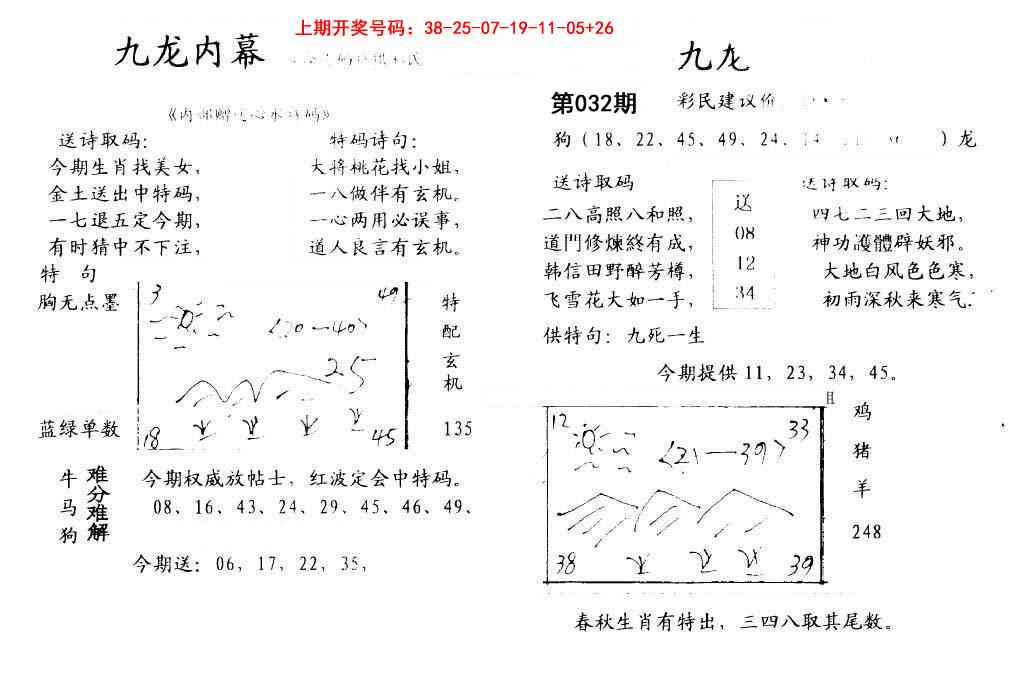 上期开奖号码：38-25-07-19-11-05+26
九龙内幕
送诗取码：
今期生肖找美女，
金土送出中特码，
一七退五定今期，
有时猜中不下注，
特码诗句：
大将桃花找小姐，
一八做伴有玄机。
一心两用必误事，
道人良言有玄机。
特 句
胸无点墨
蓝绿单数
3
49
〈20—40〉
25
18
45
特
配
玄
机
135
牛
马
狗
难
分
难
解
今期权威放帖士，红波定会中特码。
08、16、43、24、29、45、46、49、
今期送：06，17，22，35，
九龙
第032期
彩民建议价
狗（18、22、45、49、24、 ）龙
送诗取码
二八高照八和照，
道門修煉終有成，
韩信田野醉芳樽，
飞雪花大如一手，
送
08
12
34
送诗取码：
四七二三回大地，
神功護體辟妖邪。
大地白风色色寒，
初雨深秋来寒气.
供特句：九死一生
今期提供 11，23，34，45。
12
33
〈21—39〉
38
39
鸡
猪
羊
248
春秋生肖有特出，三四八取其尾数。